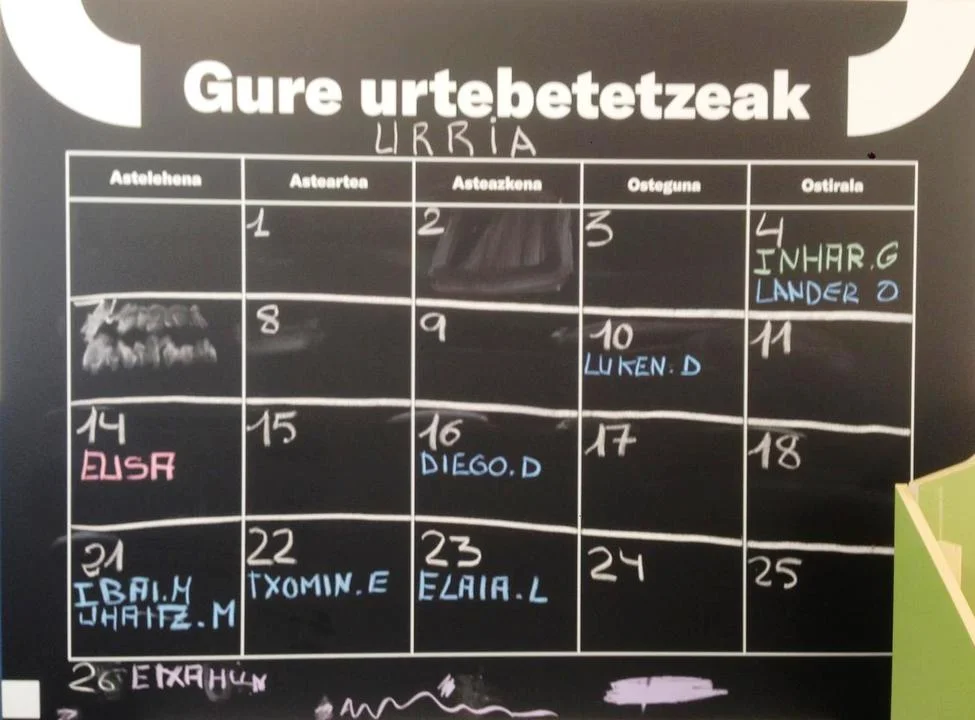 Gure urtebetetzeak
URRiA
Astelehena Asteartea Asteazkena Osteguna Ostirala
1 2 3 4
INHAR.G
LANDER O
8 9 10 11
LUKEN.D
14 15 16 17 18
ELISA DIEGO.D
21 22 23 24 25
IBAI.M TXOMIN.E ELAIA.L
UHAITZ.M
26 ETXAHUN